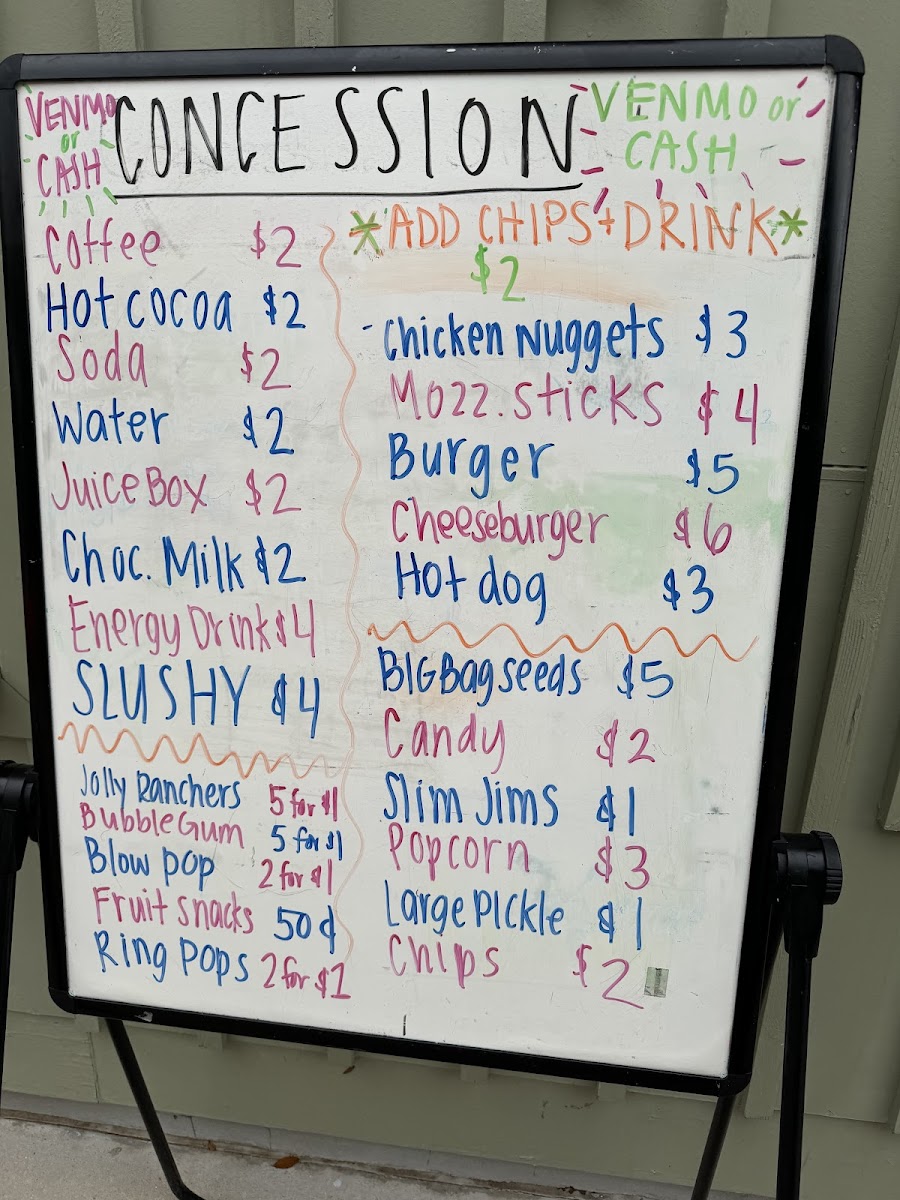 VENMO
or
CASH
CONCESSION
VENMO or
CASH
Coffee $2
Hot cocoa $2
Soda $2
Water $2
Juice Box $2
Choc. Milk $2
Energy Drink $4
SLUSHY $4
Jolly Ranchers 5 for $1
Bubble Gum 5 for $1
Blow pop 2 for $1
Fruit snacks 50¢
Ring Pops 2 for $1
*ADD CHIPS + DRINK*
$2
-Chicken Nuggets $3
Mozz. Sticks $4
Burger $5
Cheeseburger $6
Hot dog $3
BIG Bag seeds $5
Candy $2
Slim Jims $1
Popcorn $3
Large Pickle $1
Chips $2